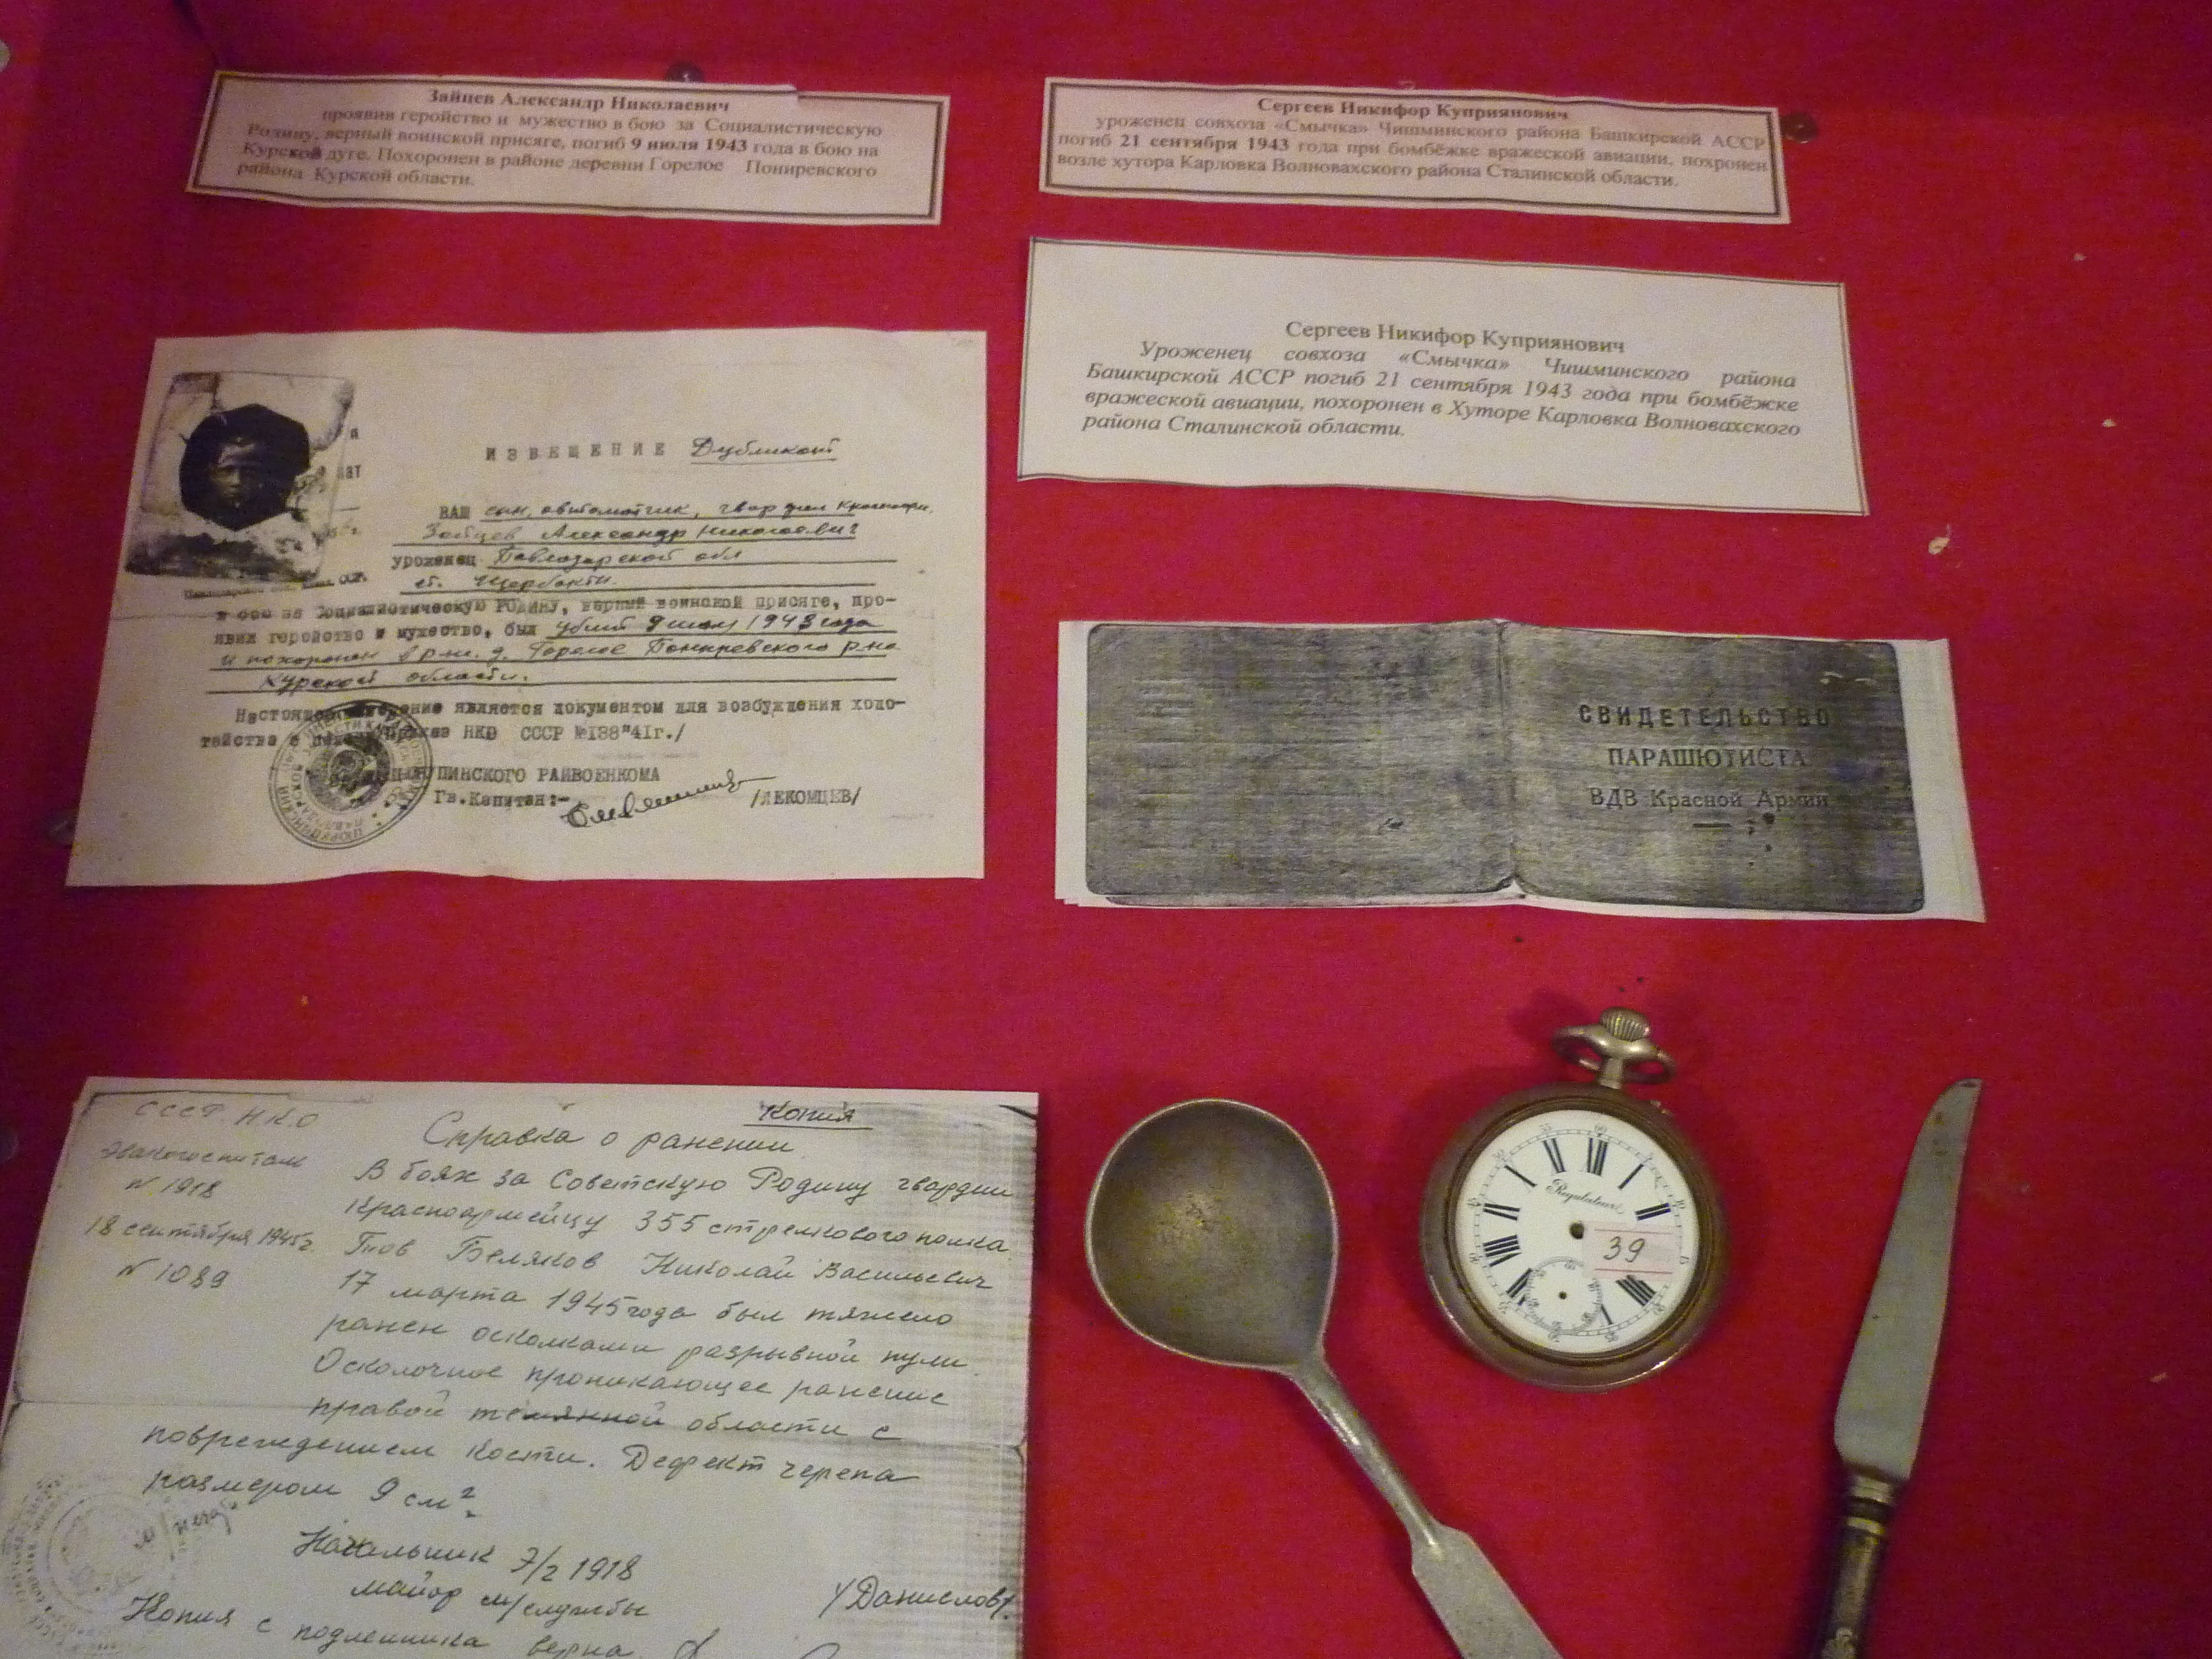 Зайцев Александр Николаевич
проявив геройство и мужество в бою за Социалистическую
Родину, верный воинской присяге, погиб 9 июля 1943 года в бою на
Курской дуге. Похоронен в районе деревни Горелое Пониревского
района Курской области.
Сергеев Никифор Куприянович
уроженец совхоза «Смычка» Чишминского района Башкирской АССР
погиб 21 сентября 1943 года при бомбёжке вражеской авиации, похронен
возле хутора Карловка Волновахского района Сталинской области.
Сергеев Никифор Куприянович
Уроженец совхоза «Смычка» Чишминского района
Башкирской АССР погиб 21 сентября 1943 года при бомбёжке
вражеской авиации, похоронен в Хуторе Карловка Волновахского
района Сталинской области.
ИЗВЕЩЕНИЕ Дубликат
ВАШ сын, автоматчик, гвардии
Зайцев Александр Николаевич
уроженец Павлодарской обл
ст. Щербакты.
в бою за Социалистическую РОДИНУ, верный воинской присяге, про-
явил геройство и мужество, был убит 9 июля 1943 года
и похоронен в р-не. д. Горелое Поныревского р-на
Курской области.
является документом для возбуждения хода-
тайства о НКО СССР №138-41г./
РАЙВОЕНКОМА
Гв.Капитан:- /ЛЕКОМЦЕВ/
СВИДЕТЕЛЬСТВО
ПАРАШЮТИСТА
ВДВ Красной Армии
СССР. Н.К.О
Эвакогоспиталь
N 1918
18 сентября 1945г.
N 1089
Копия
Справка о ранении
В боях за Советскую Родину гвардии
Красноармейцу 355 стрелкового полка
Беляков Николай Васильевич
17 марта 1945 года был тяжело
ранен осколками разрывной пули
Осколочное проникающее ранение
правой теменной области с
повреждением кости. Дефект черепа
размером 9 см²
Начальник Э/г 1918
майор м/службы /Данислов/.
Копия с подленника верна.
Regulateur
39